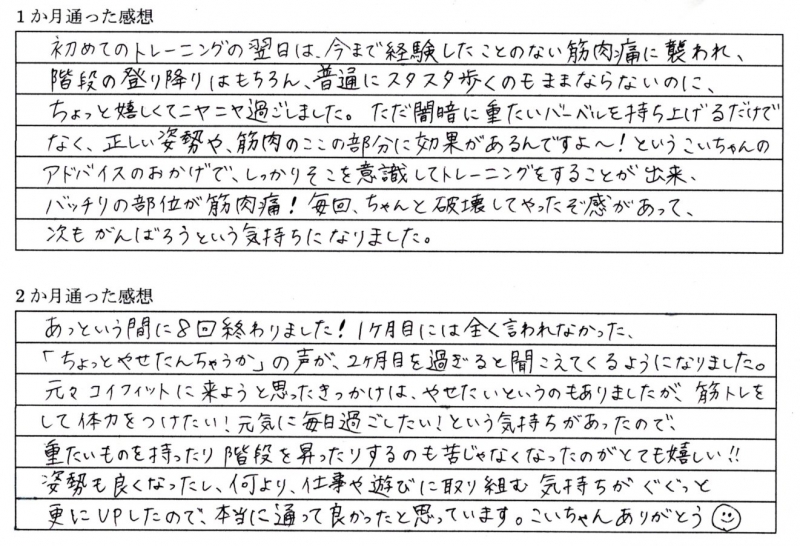 1か月通った感想
初めてのトレーニングの翌日は、今まで経験したことのない筋肉痛に襲われ、
階段の登り降りはもちろん、普通にスタスタ歩くのもままならないのに、
ちょっと嬉しくてニヤニヤ過ごしました。ただ闇暗に重たいバーベルを持ち上げるだけで
なく、正しい姿勢や、筋肉のここの部分に効果があるんですよ〜！というこいちゃんの
アドバイスのおかげで、しっかりそこを意識してトレーニングをすることが出来、
バッチリの部位が筋肉痛！毎回、ちゃんと破壊してやったぞ感があって、
次もがんばろうという気持ちになりました。
2か月通った感想
あっという間に8回終わりました！1ヶ月目には全く言われなかった、
「ちょっとやせたんちゃうか」の声が、2ヶ月目を過ぎると聞こえてくるようになりました。
元々コイフィットに来ようと思ったきっかけは、やせたいというのもありましたが、筋トレを
して体力をつけたい！元気に毎日過ごしたい！という気持ちがあったので、
重たいものを持ったり階段を昇ったりするのも苦じゃなくなったのがとても嬉しい!!
姿勢も良くなったし、何より、仕事や遊びに取り組む気持ちがぐぐっと
更にUPしたので、本当に通って良かったと思っています。こいちゃんありがとう